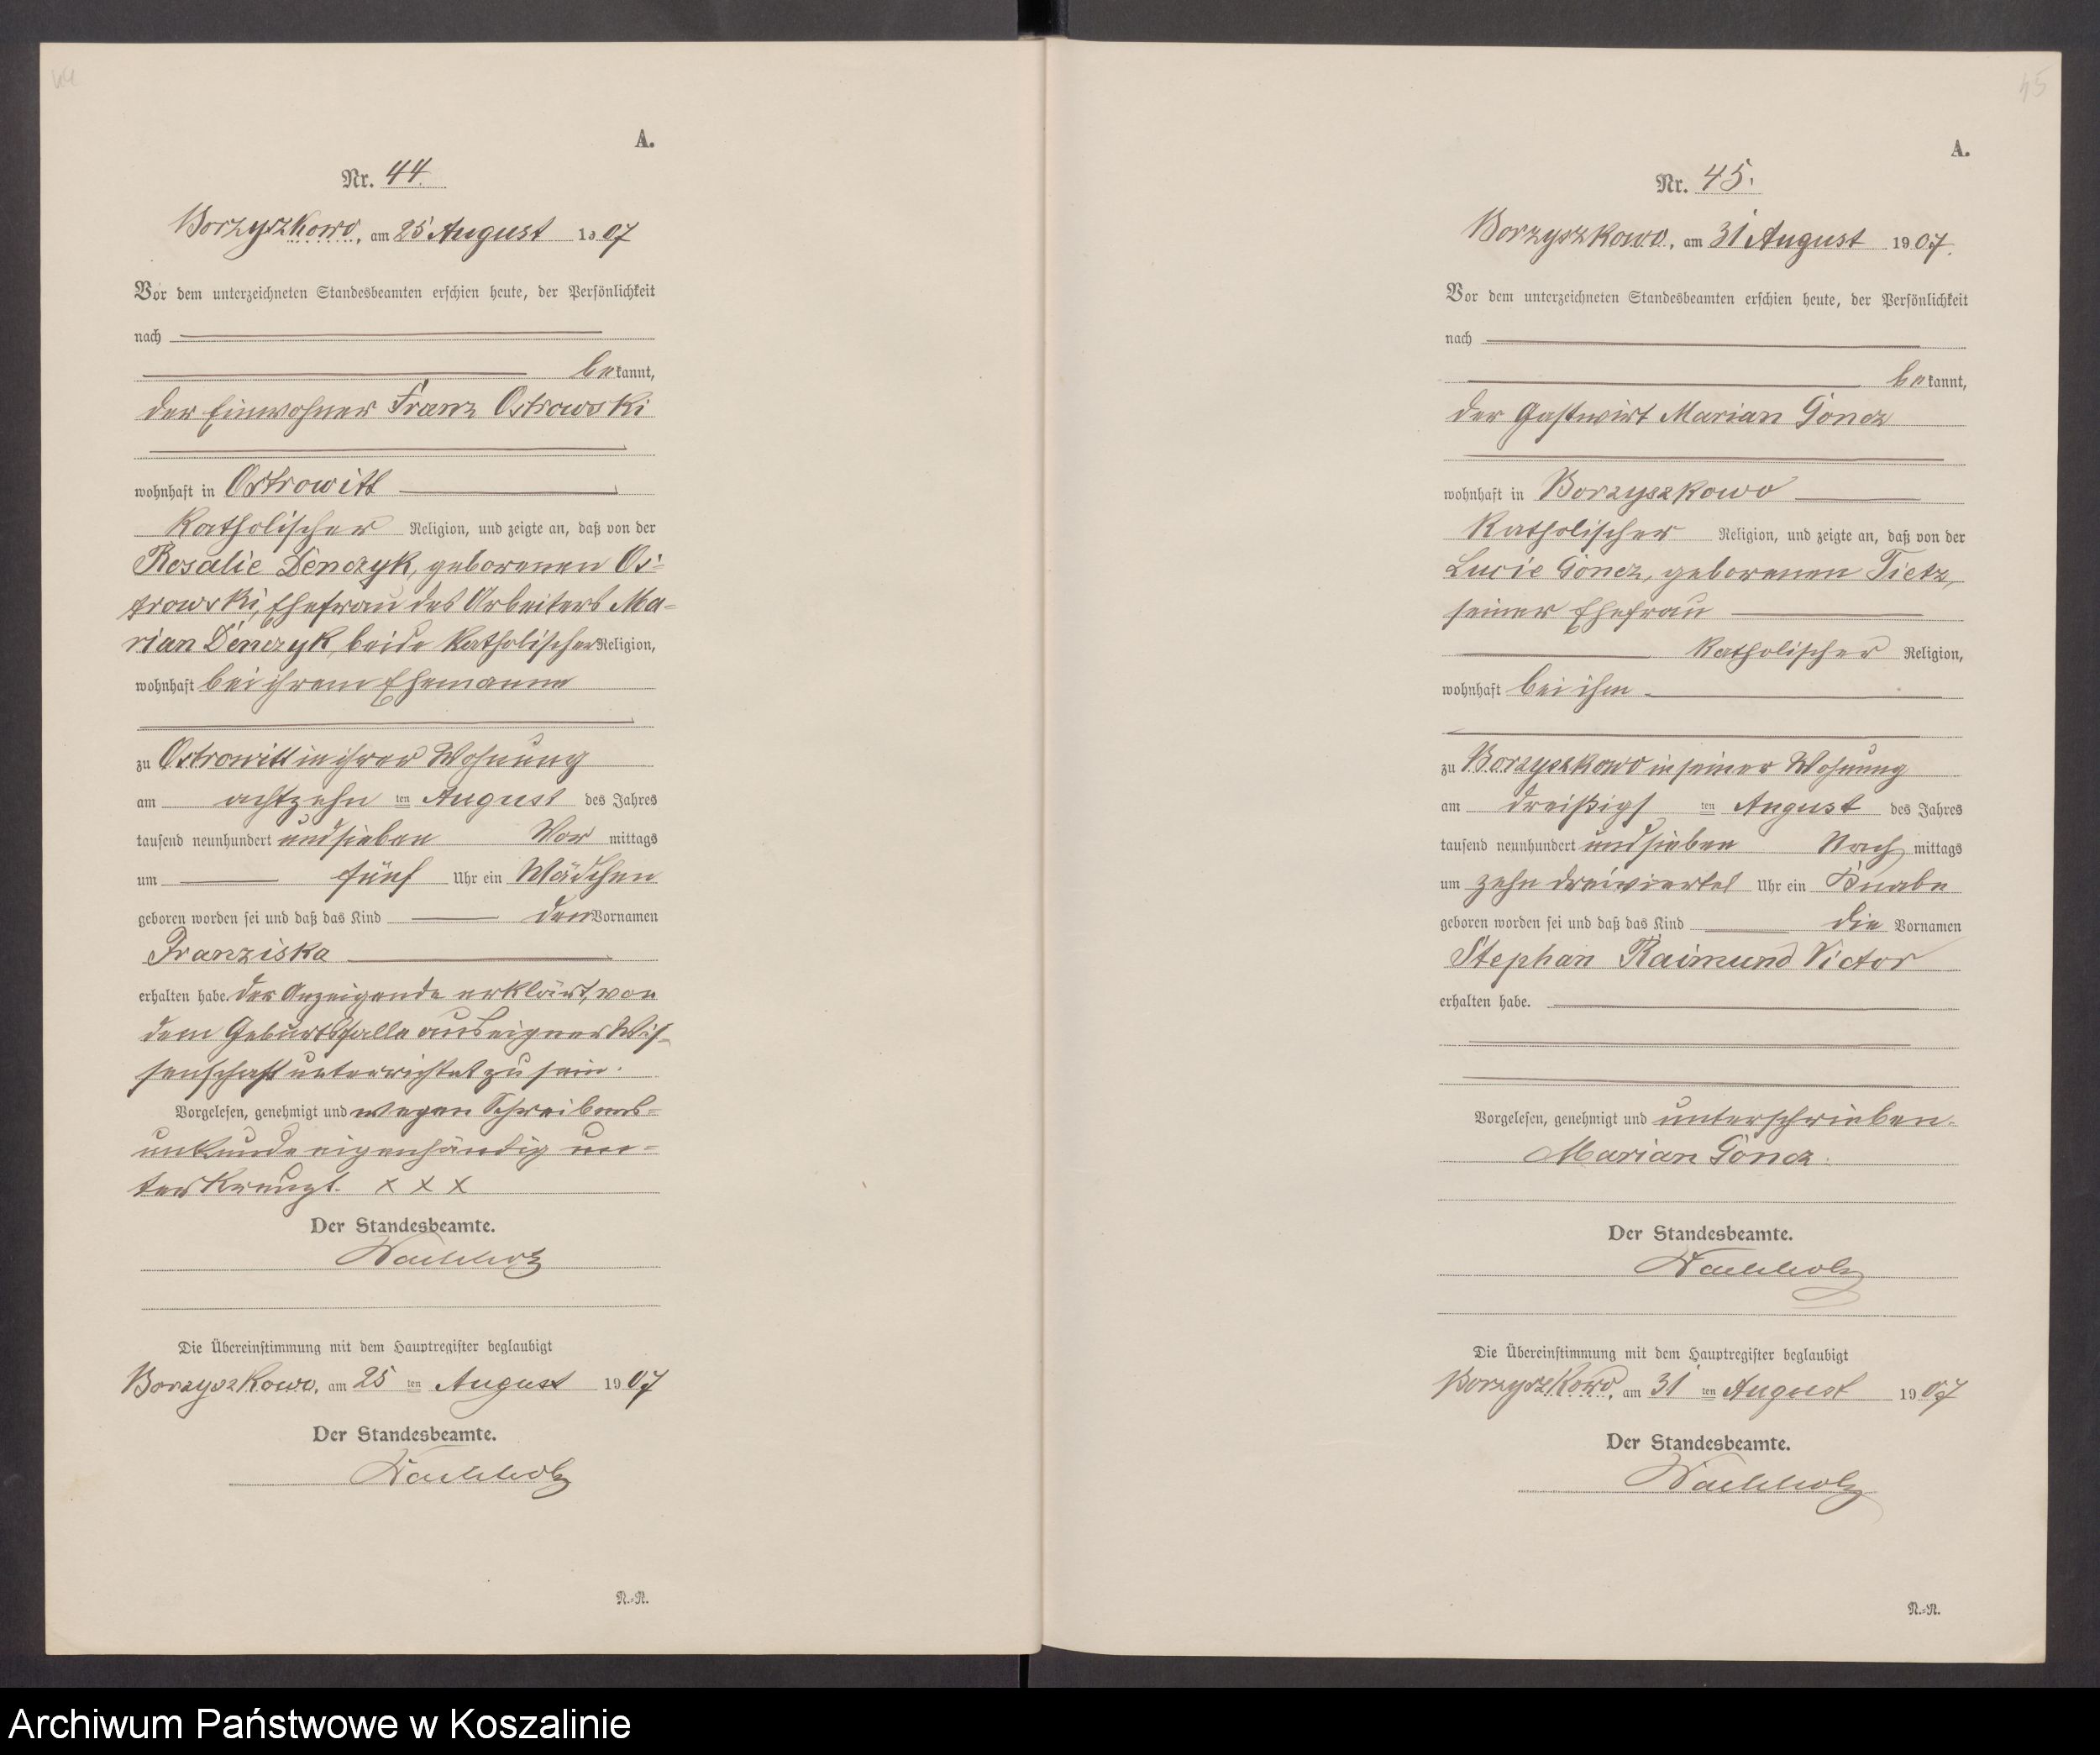 44
A.
Nr. 44.
Borzyszkowo, am 25 August 1907
Vor dem unterzeichneten Standesbeamten erschien heute, der Persönlichkeit
nach
bekannt,
der Einwohner Franz Ostrowski
wohnhaft in Ostrowitt
katholischer Religion, und zeigte an, daß von der
Rosalie Denczyk, geborenen Os-
trowski, Ehefrau des Arbeiters Ma-
rian Denczyk, beide katholischer Religion,
wohnhaft bei ihrem Ehemanne
zu Ostrowitt in ihrer Wohnung
am achtzehn ten August des Jahres
tausend neunhundert und sieben Vor mittags
um fünf Uhr ein Mädchen
geboren worden sei und daß das Kind den Vornamen
Franziska
erhalten habe. Der Anzeigende erklärt, von
dem Geburtsfalle aus eigner Wis-
senschaft unterrichtet zu sein.
Vorgelesen, genehmigt und wegen Schreibens-
unkunde eigenhändig un-
terkreuzt. x x x
Der Standesbeamte.
Wachholz
Die Übereinstimmung mit dem Hauptregister beglaubigt
Borzyszkowo, am 25 ten August 1907
Der Standesbeamte.
Wachholz
N.-N.
45
A.
Nr. 45.
Borzyszkowo, am 31 August 1907.
Vor dem unterzeichneten Standesbeamten erschien heute, der Persönlichkeit
nach
bekannt,
der Gastwirt Marian Goncz
wohnhaft in Borzyszkowo
katholischer Religion, und zeigte an, daß von der
Lucie Goncz, geborenen Tietz,
seiner Ehefrau
katholischer Religion,
wohnhaft bei ihm
zu Borzyszkowo in seiner Wohnung
am dreißigs ten August des Jahres
tausend neunhundert und sieben Nach mittags
um zehn dreiviertel Uhr ein Knabe
geboren worden sei und daß das Kind die Vornamen
Stephan Raimund Victor
erhalten habe.
Vorgelesen, genehmigt und unterschrieben.
Marian Goncz.
Der Standesbeamte.
Wachholz
Die Übereinstimmung mit dem Hauptregister beglaubigt
Borzyszkowo, am 31 ten August 1907
Der Standesbeamte.
Wachholz
N.-N.
Archiwum Państwowe w Koszalinie